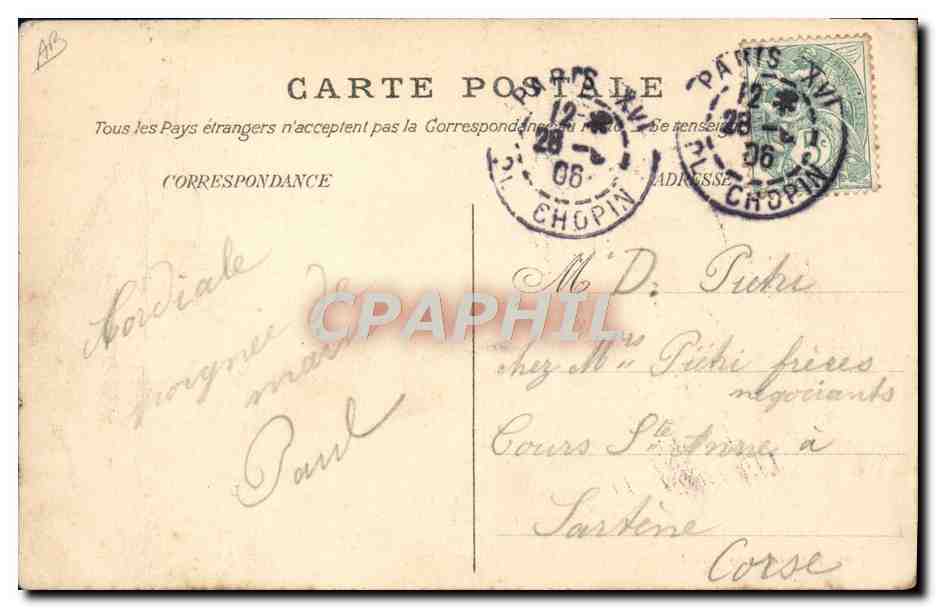 AB
CARTE POSTALE
Tous les Pays étrangers n'acceptent pas la Correspondance au recto. Se renseign
CORRESPONDANCE
ADRESSE
PARIS XVI
12
28 - 4
06
PL. CHOPIN
PARIS XVI
12
28 - 4
06
PL. CHOPIN
5c
Cordiale
poignée de
main
Paul
M. D. Pietri
chez Mrs Pietri frères
négociants
Cours Ste Anne à
Sartène
Corse
CPAPHIL